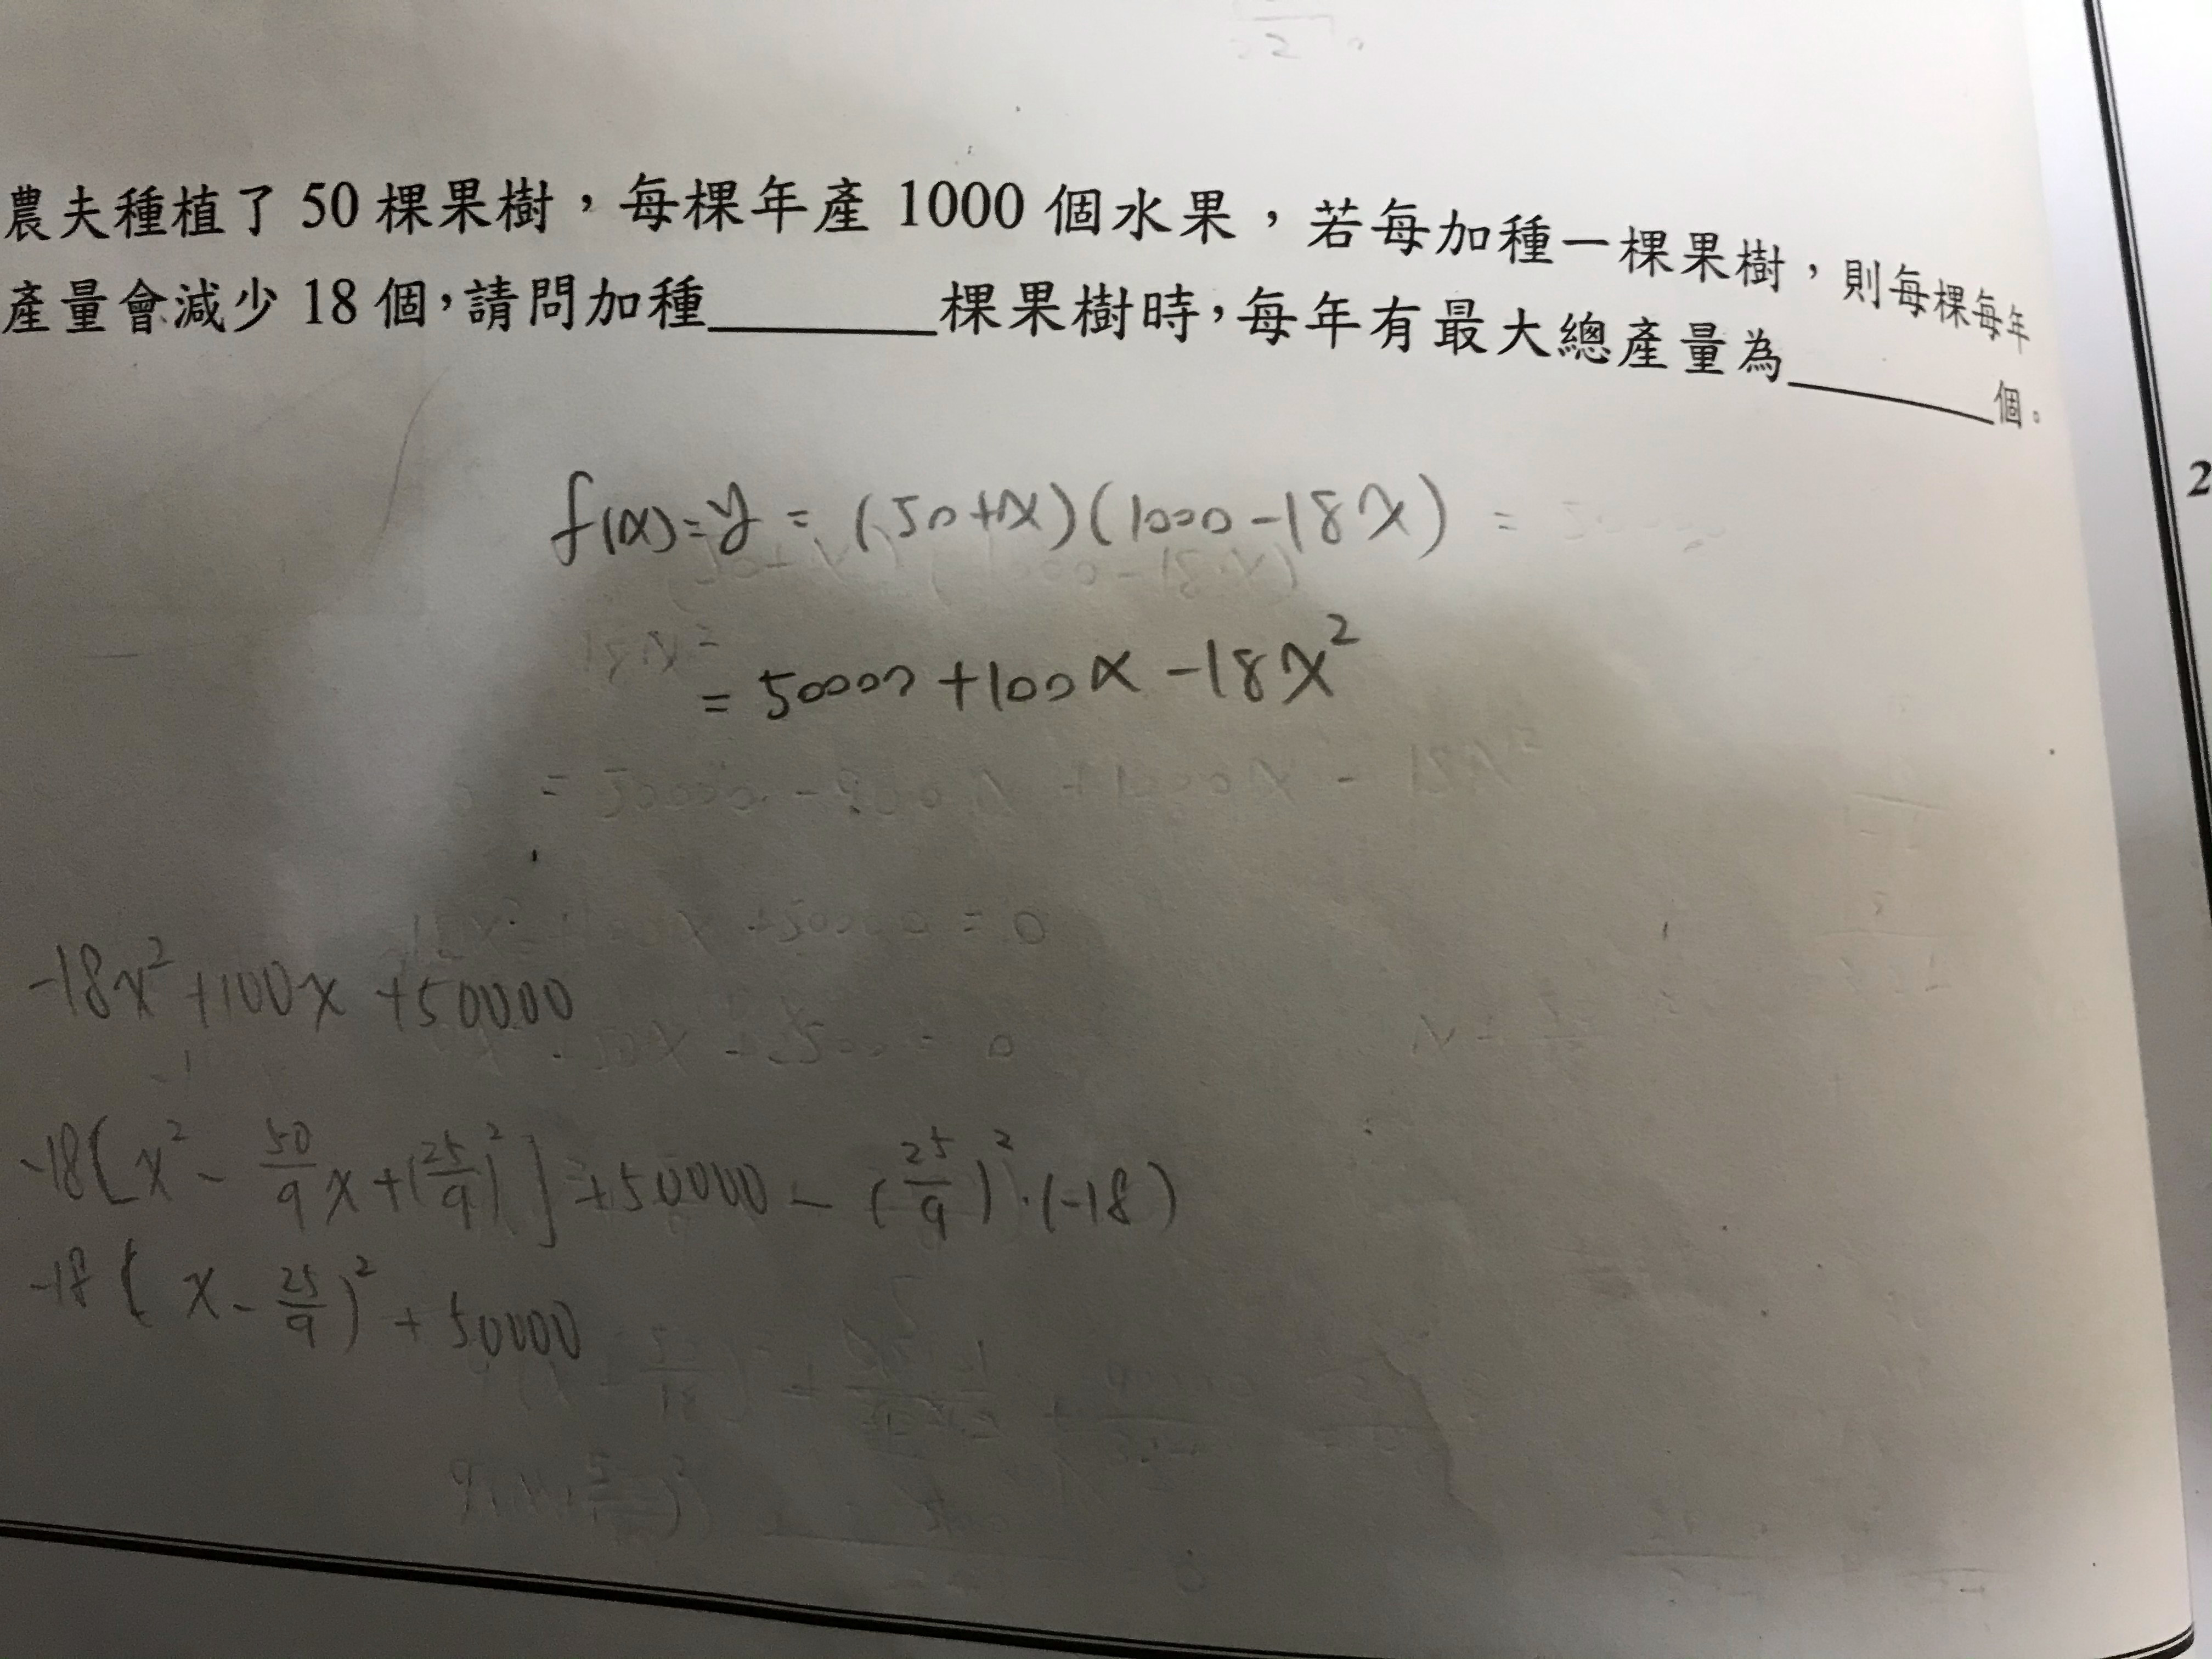 農夫種植了 50 棵果樹，每棵年產 1000 個水果，若每加種一棵果樹，則每棵每年
產量會減少 18 個，請問加種______棵果樹時，每年有最大總產量為______個。
2
f(x)=y = (50+x)(1000-18x) =
= 50000 +100x -18x²
-18x² +100x +50000
-18[x² - 50/9 x + (25/9)²] +50000 - (25/9)²·(-18)
-18(x - 25/9)² + 50000